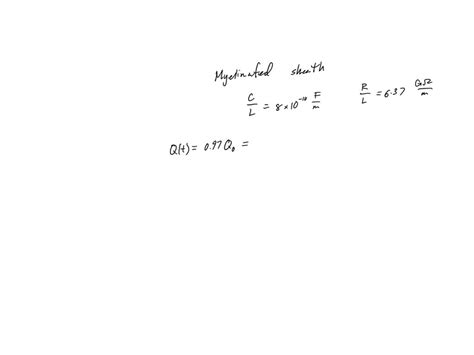 Myelinated sheath
C/L = 8×10⁻¹⁰ F/m
R/L = 6.37 GΩ/m
Q(t) = 0.97Q₀ =